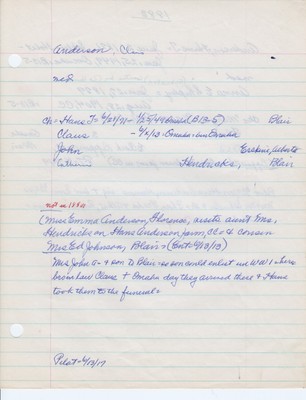 Anderson, Claus
ch- Hans J- 6/21/71- 1/25/49 buried (B13-5) Blair
Claus - 4/2/13- Omaha- bur Omaha
John Erskine, Alberta
Hendricks, Blair
not in 1880
(Miss Emma Anderson, Florence, visits aunt Mrs.
Hendrickson, Hans Anderson farm, CC & cousin
Mrs Ed Johnson, Blair- (Oct 4/10/13)
Mrs John A- & son to Blair- so son could enlist in WW 1- hus
bros how Claus + Omaha day they arrived there & Hans
took them to the funeral-
Pilot- 6/13/17